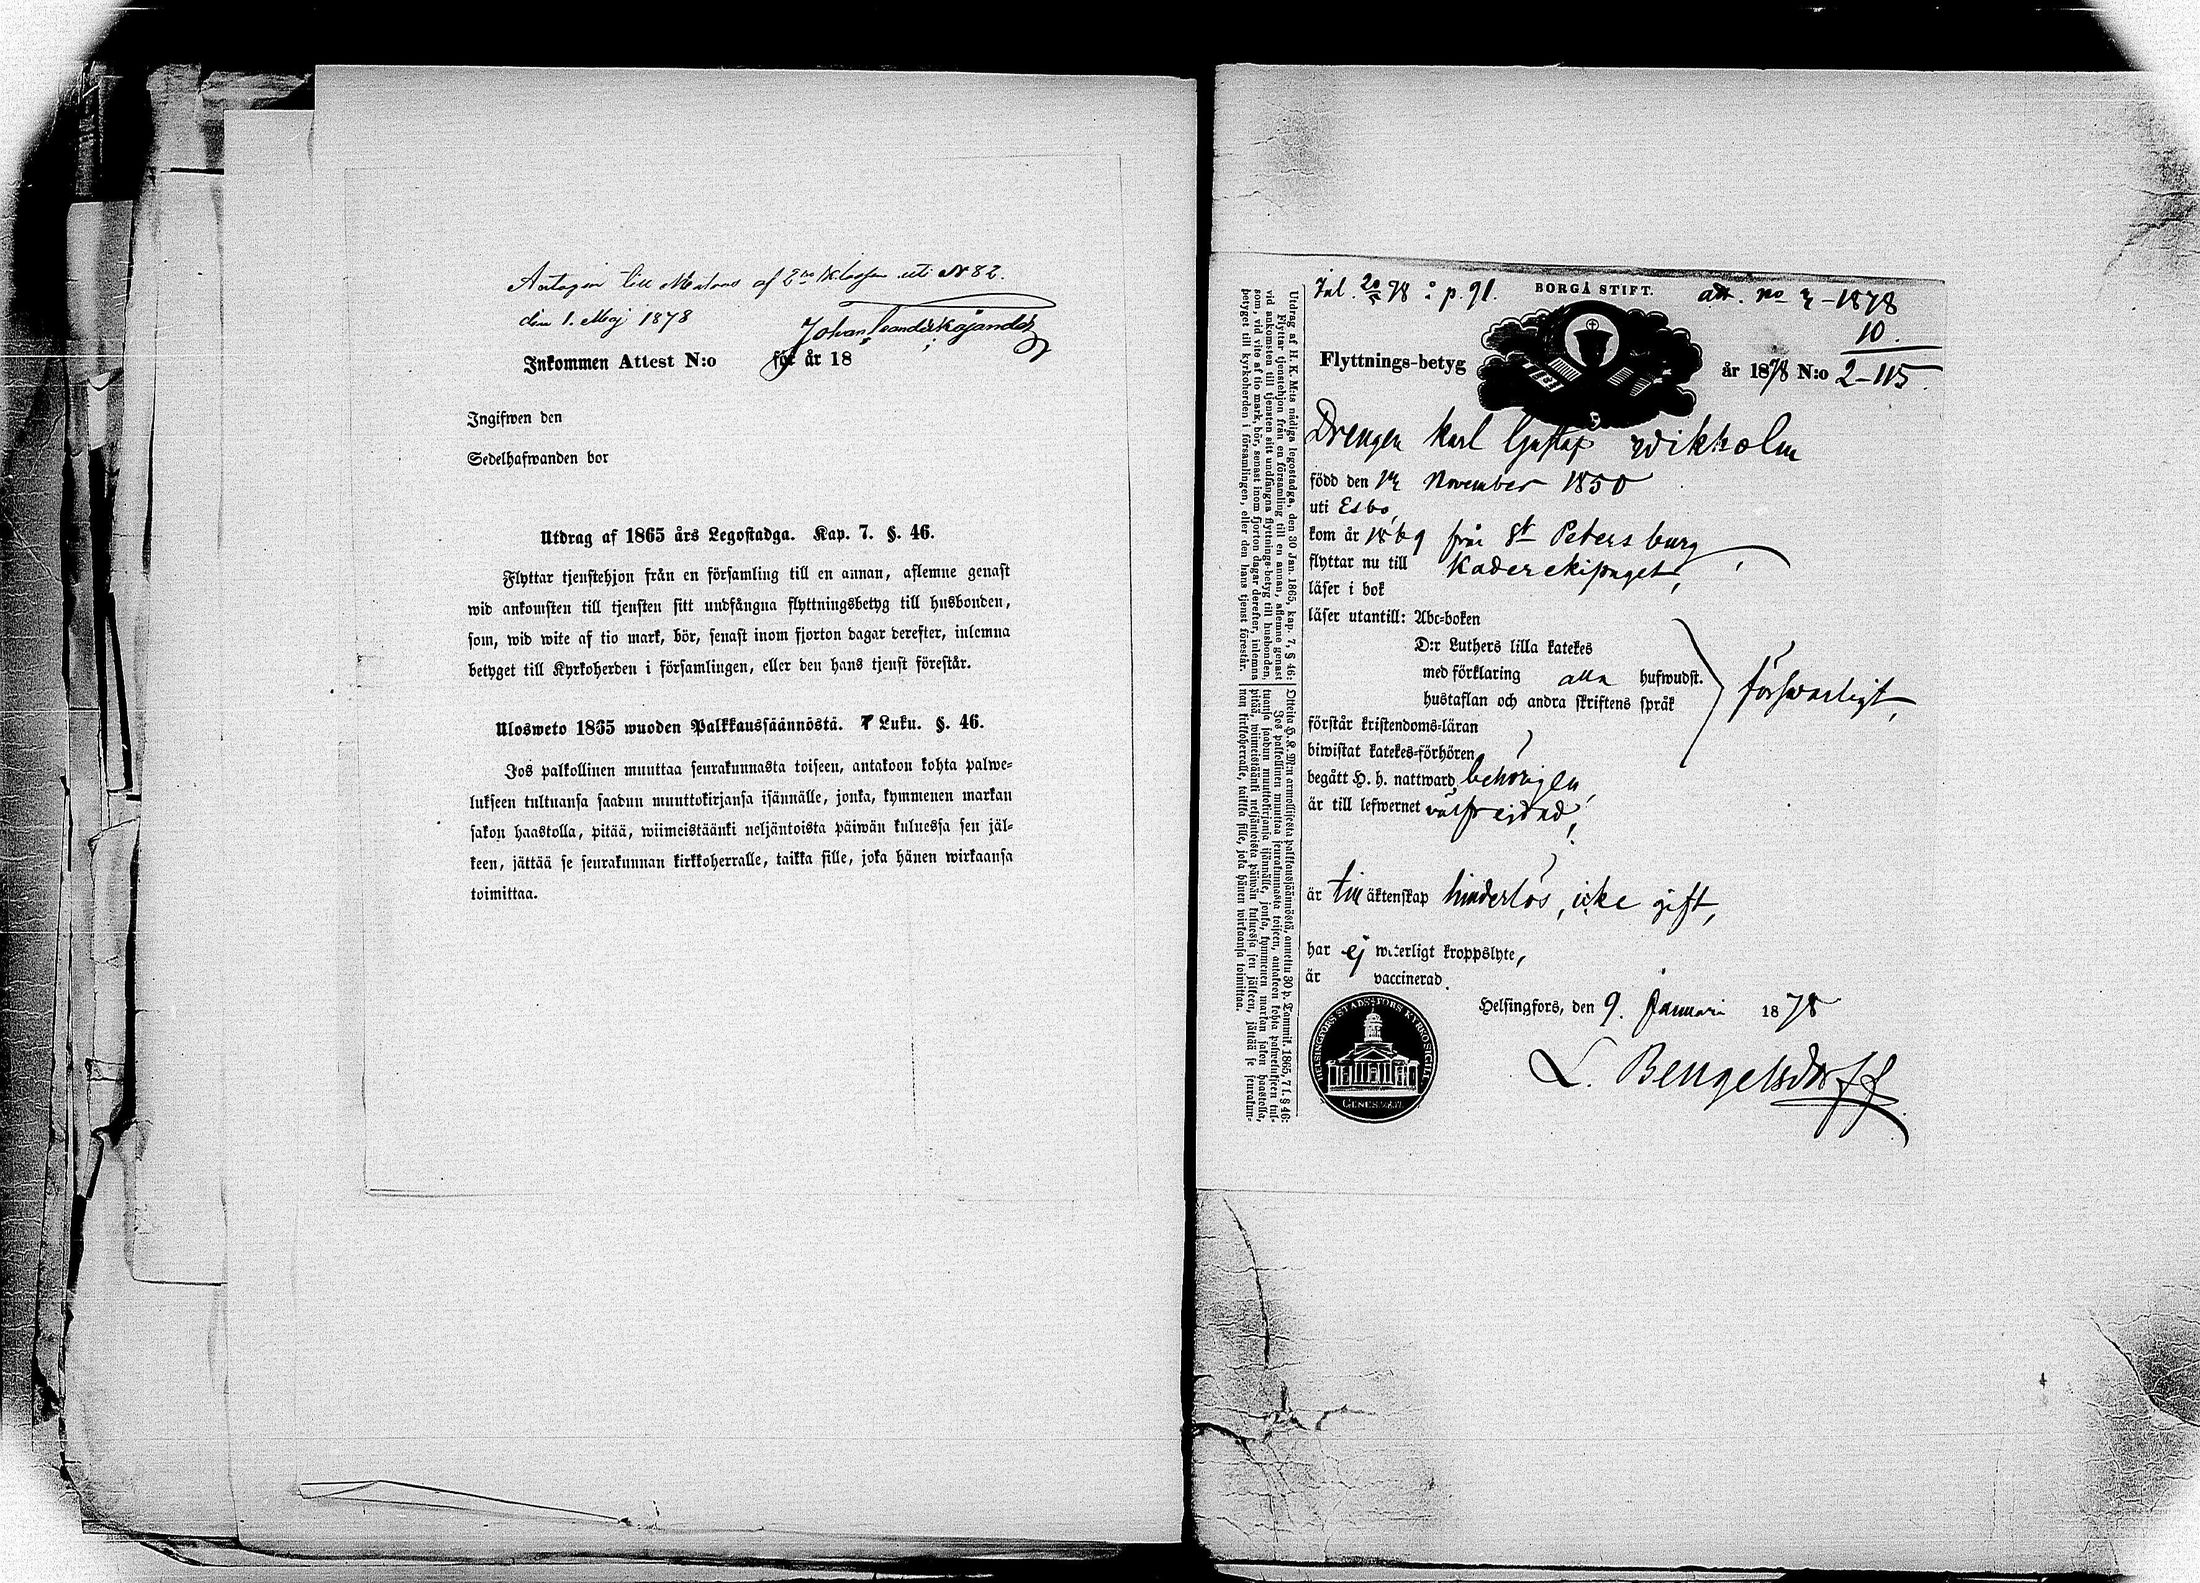 Antagen till Matros af 2:dra Klassen uti N 82.
den 1. Maj 1878
Johan Leander Kajander
Inkommen Attest N:o för år 18
Ingifwen den
Sedelhafwanden bor
Utdrag af 1865 års Legostadga. Kap. 7. §. 46.
Flyttar tjenstehjon från en församling till en annan, aflemne genast
wid ankomsten till tjensten sitt undfångna flyttningsbetyg till husbonden,
som, wid wite af tio mark, bör, senast inom fjorton dagar derefter, inlemna
betyget till Kyrkoherden i församlingen, eller den hans tjenst förestår.
Ulosweto 1865 wuoden Palkkaussäännöstä. 7 Luku. §. 46.
Jos palkollinen muuttaa seurakunnasta toiseen, antakoon kohta palwe-
lukseen tultuansa saadun muuttokirjansa isännälle, jonka, kymmenen markan
sakon haastolla, pitää, wiimeistäänki neljäntoista päiwän kuluessa sen jäl-
keen, jättää se seurakunnan kirkkoherralle, taikka sille, joka hänen wirkaansa
toimittaa.
Utdrag af H. K. M:ts nådiga legostadga, den 30 Jan. 1865, kap. 7, § 46:
Flyttar tjenstehjon från en församling till en annan, aflemne genast
vid ankomsten till tjensten sitt undfångna flyttnings-betyg till husbonden,
som, vid vite af tio mark, bör, senast inom fjorton dagar derefter, inlemna
betyget till kyrkoherden i församlingen, eller den hans tjenst förestår.
Otteita H. K. M:n armollisesta palkkaussäännöstä, annettu 30 p. Tammik. 1865, 7 l. § 46:
Jos palkollinen muuttaa seurakunnasta toiseen, antakoon kohta palwelukseen tul-
tuansa saadun muuttokirjansa isännälle, jonka, kymmenen markan sakon haastolla,
pitää, wiimeistäänki neljäntoista päiwän kuluessa sen jälkeen, jättää se seurakun-
nan kirkkoherralle, taikka sille, joka hänen wirkaansa toimittaa.
Inl. 20/5 78 : p. 91. BORGÅ STIFT. att. no 2-1878
10.
Flyttnings-betyg år 1878 N:o 2-115.
Drengen Karl Gustaf Wikholm
född den 12 November 1850
uti Esbo,
kom år 1869 från St Petersburg,
flyttar nu till Kaderekipaget,
läser i bok
läser utantill: Abc-boken
D:r Luthers lilla katekes
med förklaring alla hufwudst.
hustaflan och andra skriftens språk
försvarligt,
förstår kristendoms-läran
biwistat katekes-förhören
begått H. h. nattward behörigen,
är till lefwernet välfrejdad,
är till äktenskap hinderlös, icke gift,
har ej witterligt kroppslyte,
är vaccinerad.
Helsingfors, den 9. Januari 1878
L. Bengelsdorff
HELSINGFORS STADS-FÖRS. KYRKOSIGILL